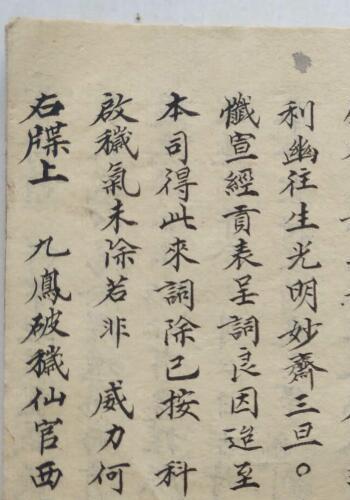 利幽往生光明妙齋三旦。
懺宣經貢表呈詞良因迨至
本司得此來詞除已按 科
啟穢氣未除若非 威力何
右牒上 九鳳破穢仙官西